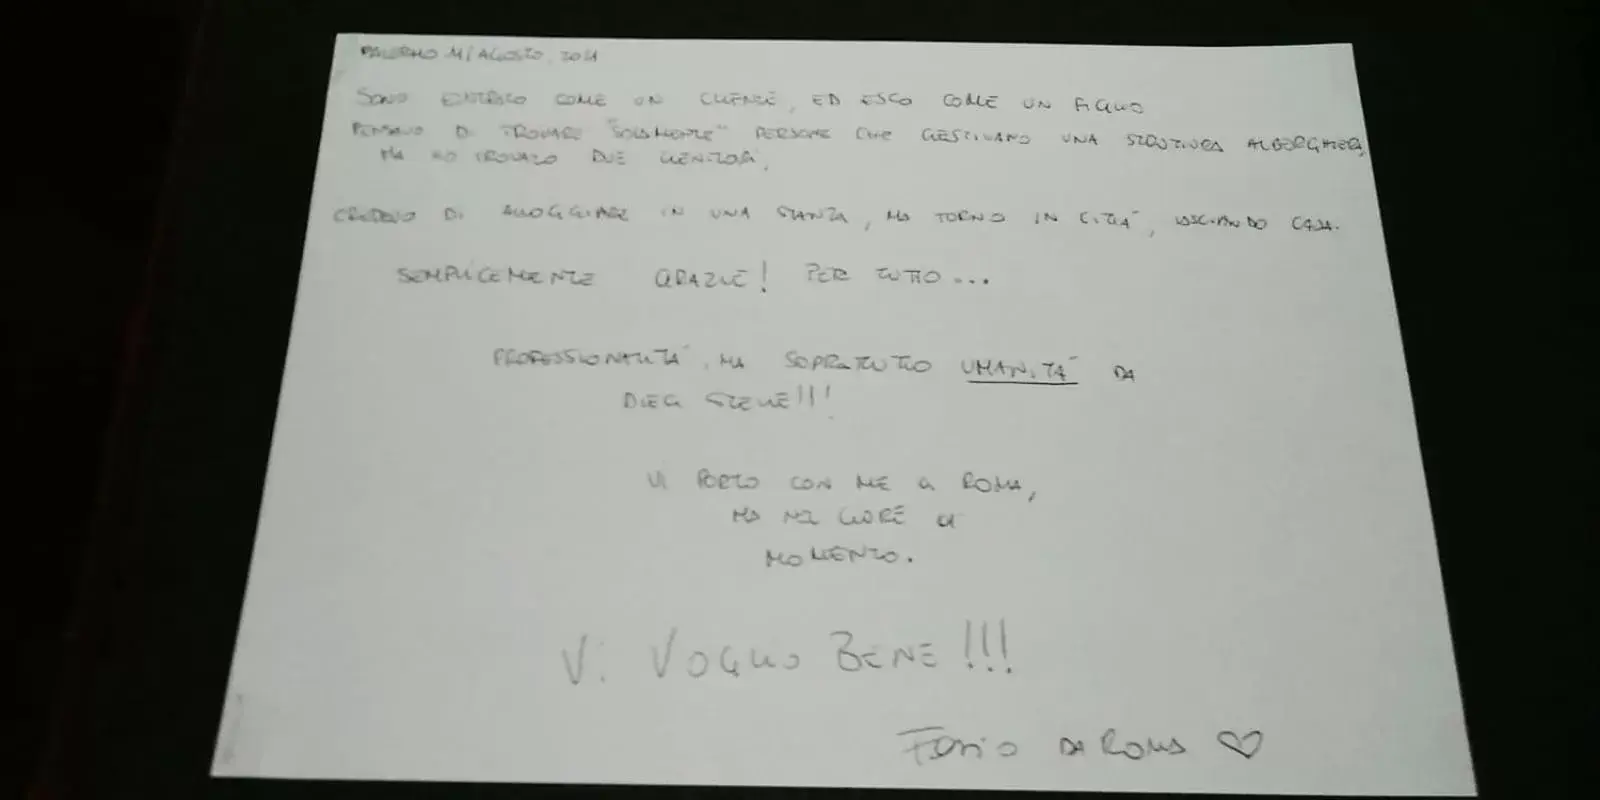 PALERMO 11/AGOSTO, 2021
SONO ENTRATO COME UN CLIENTE, ED ESCO COME UN FIGLIO
PENSAVO DI TROVARE "SOLAMENTE" PERSONE CHE GESTIVANO UNA STRUTTURA ALBERGHIERA,
MA HO TROVATO DUE GENITORI,
CREDEVO DI ALLOGGIARE IN UNA STANZA, MA TORNO IN CITTÀ, LASCIANDO CASA.
SEMPLICEMENTE GRAZIE! PER TUTTO...
PROFESSIONALITÀ, MA SOPRATUTTO UMANITÀ DA
DIECI STELLE!!!
VI PORTO CON ME A ROMA,
MA NEL CUORE
MOMENTO.
VI VOGLIO BENE!!!
DA ROMA ♡